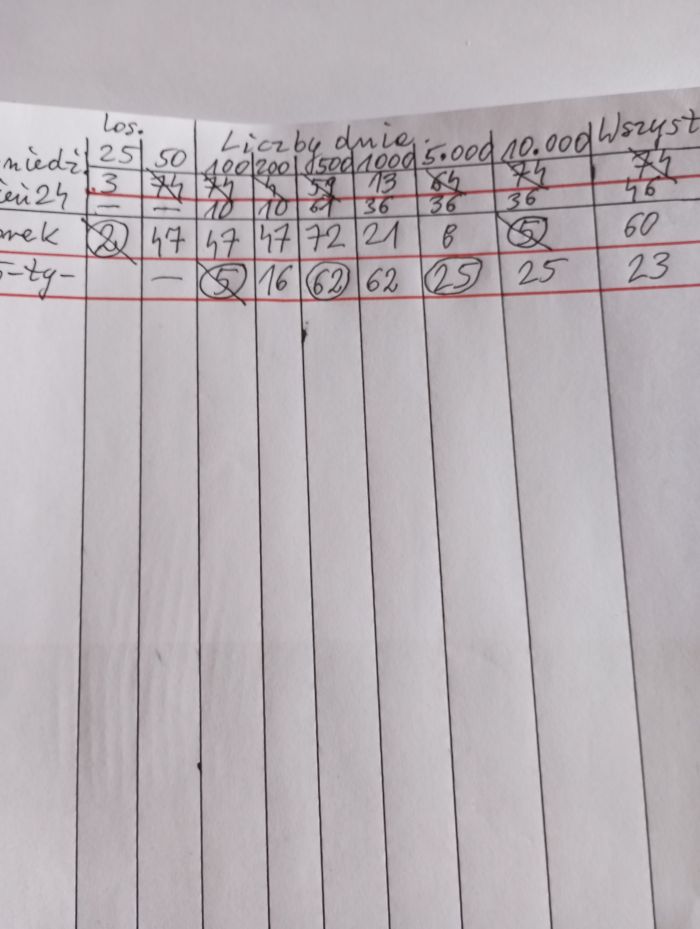 Los. Liczby dnie. Wszyst
niedz. 25 50 100 200 1500 1000 5.000 10.000
3 74 74 4 59 13 64 74 74
24 — — 10 10 61 36 36 36 46
orek 2 47 47 47 72 21 8 5 60
-ty- — 5 16 62 62 25 25 23